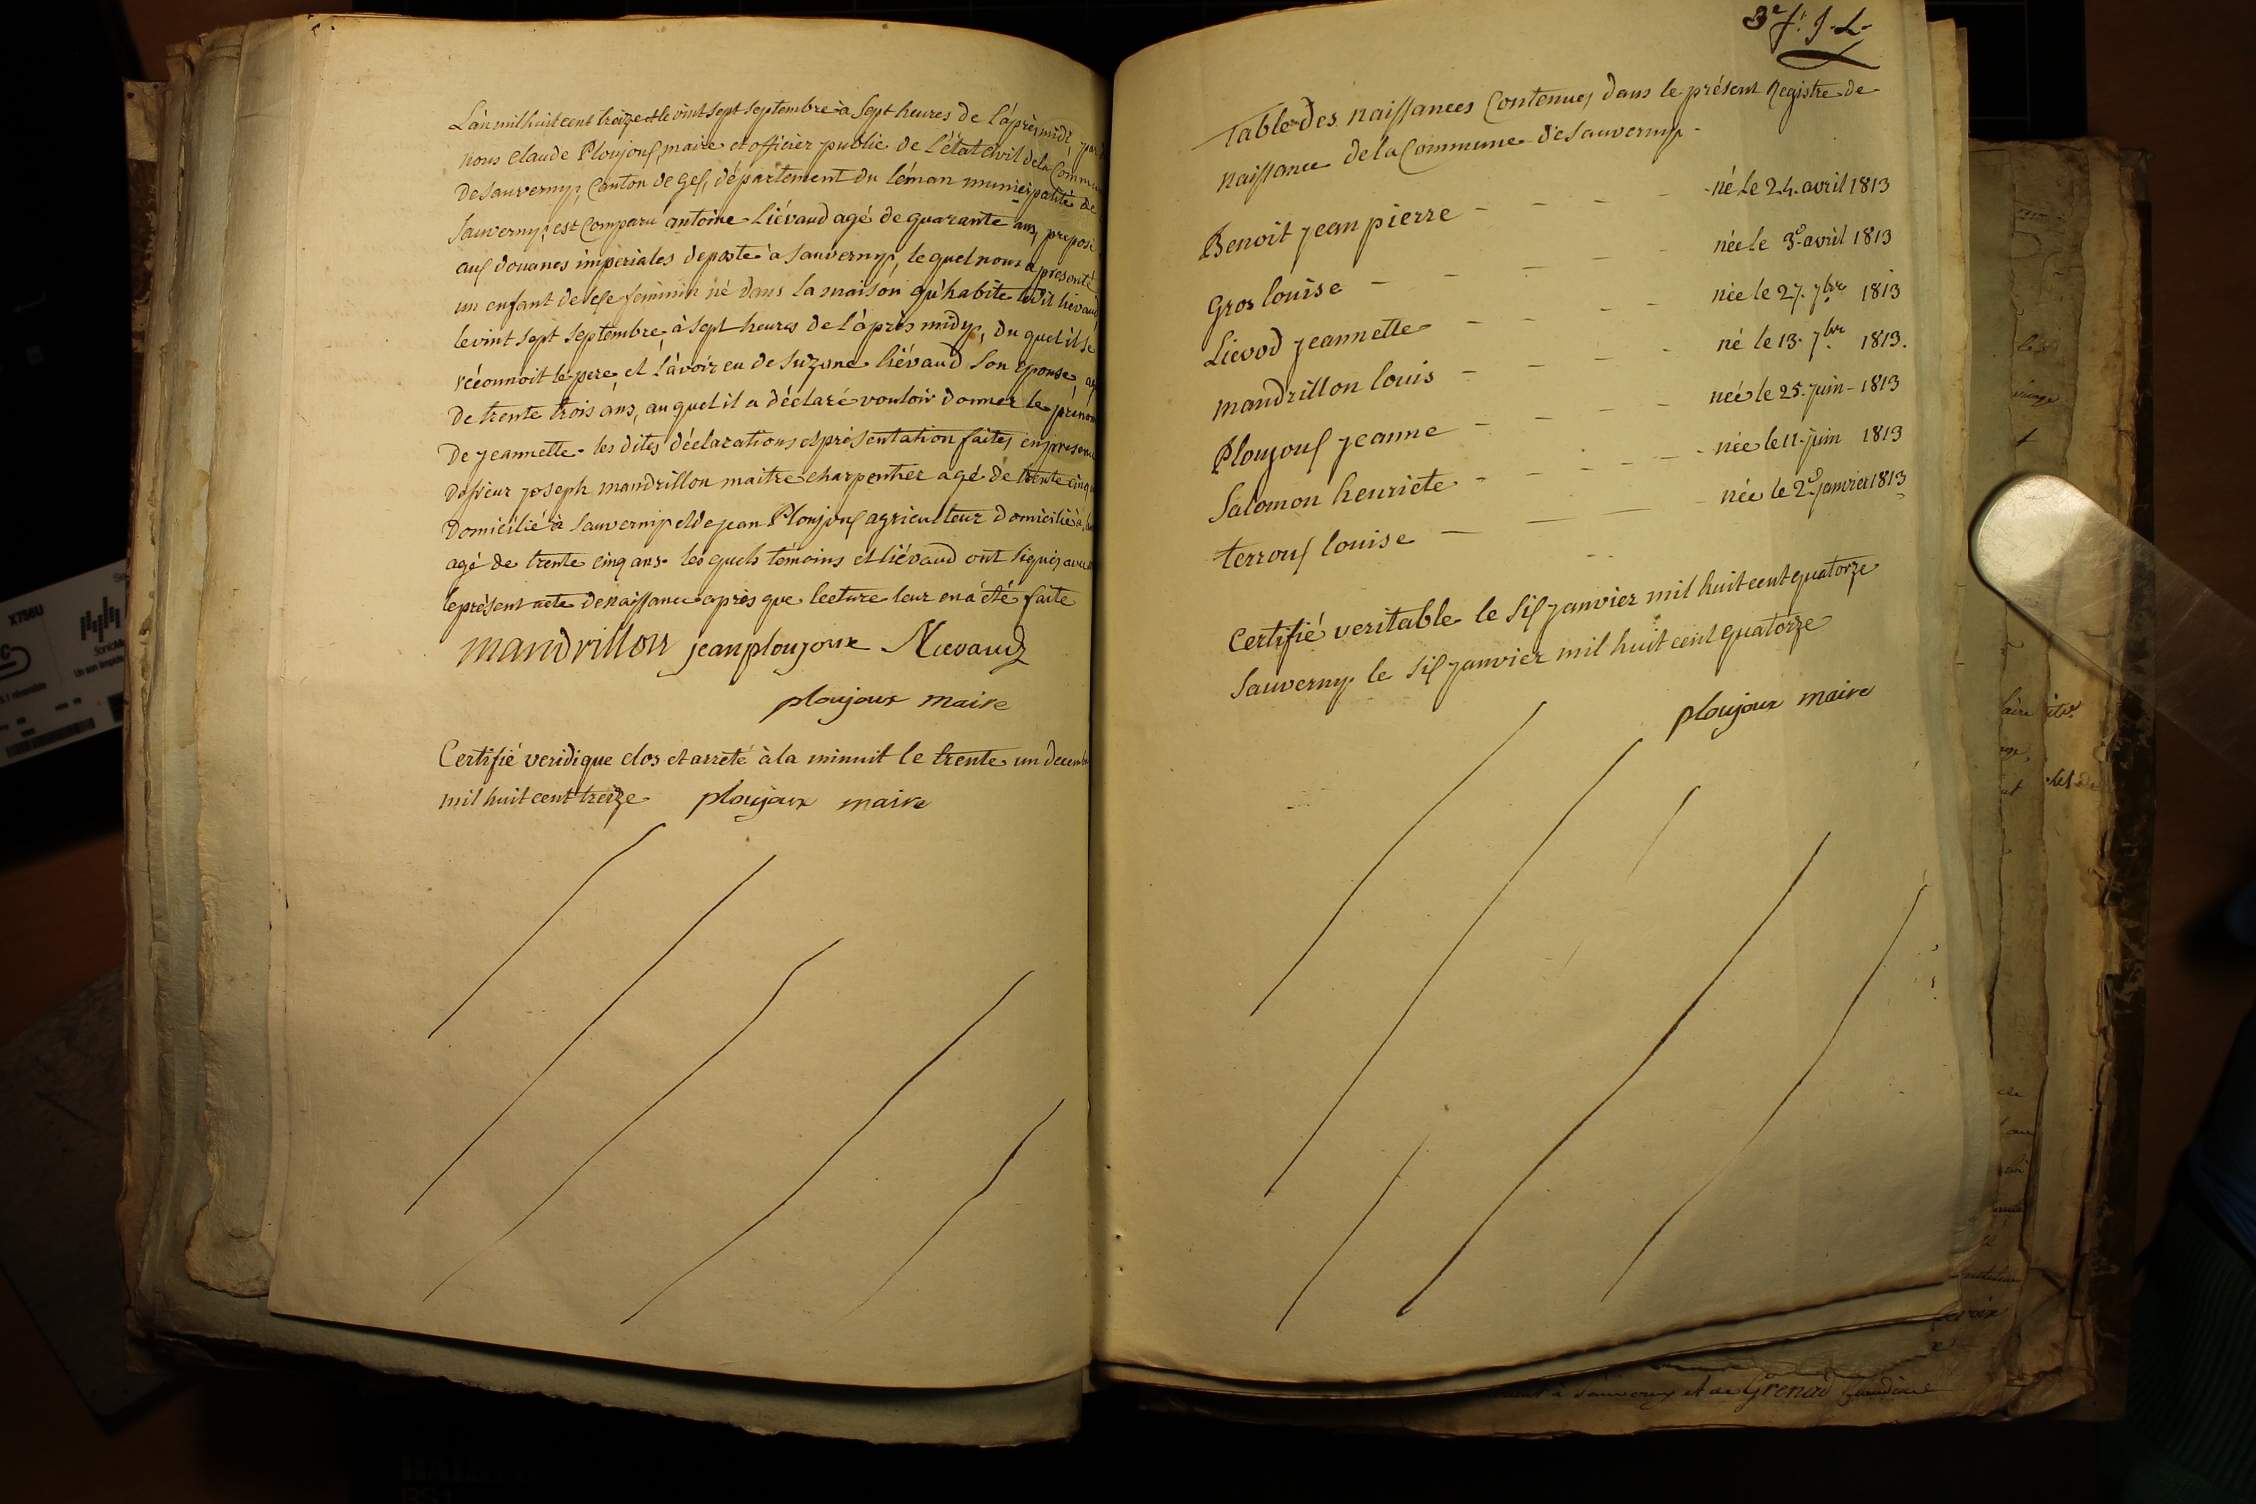 L'an mil huit cent treize et le vint sept septembre à sept heures de l'après midi par
nous Claude Ploujoux maire et officier public de l'état civil de la Commu
de Sauverny, Canton de Gex, département du léman municipalité de
Sauverny, est Comparu antoine Liévaud agé de quarante ans, préposé
aux douanes imperiales de poste à Sauverny, le quel nous a presenté
un enfant de sexe feminin né dans la maison qu'habite ledit liévaud
le vint sept septembre, à sept heures de l'après midy, du quel il se
réconnoit le pere et l'avoir eu de Suzane liévaud son épouse, ag
de trente trois ans, au quel il a déclaré vouloir donner le prénom
de jeannette. les dites déclarations et présentation faites en presence
de joseph mandrillon maitre charpentier agé de trente cinq
domicilié à Sauverny et de jean Ploujoux agriculteur domicilié à
agé de trente cinq ans. les quels témoins et liévaud ont signés avec
le présent acte de naissance après que lecture leur en a été faite
mandrillon jean ploujoux Lievaud
ploujoux maire
Certifié veridique clos et arreté à la minuit le trente un decemb
mil huit cent treize ploujoux maire
3e
Table des naissances Contenues dans le présent Registre de
naissance de la Commune de Sauverny.
Benoit jean pierre - - - - né le 24. avril 1813
Gros louise - - - - née le 3e avril 1813
Lievod jeannette - - - - née le 27. 7bre 1813
mandrillon louis - - - - né le 13. 7bre 1813.
Ploujoux jeanne - - - - neé le 25. juin - 1813
Salomon henriete - - - - née le 11. juin 1813
terroux louise - - - née le 2e janvier 1813
Certifié veritable le six janvier mil huit cent quatorze
Sauverny le six janvier mil huit cent quatorze
ploujoux maire